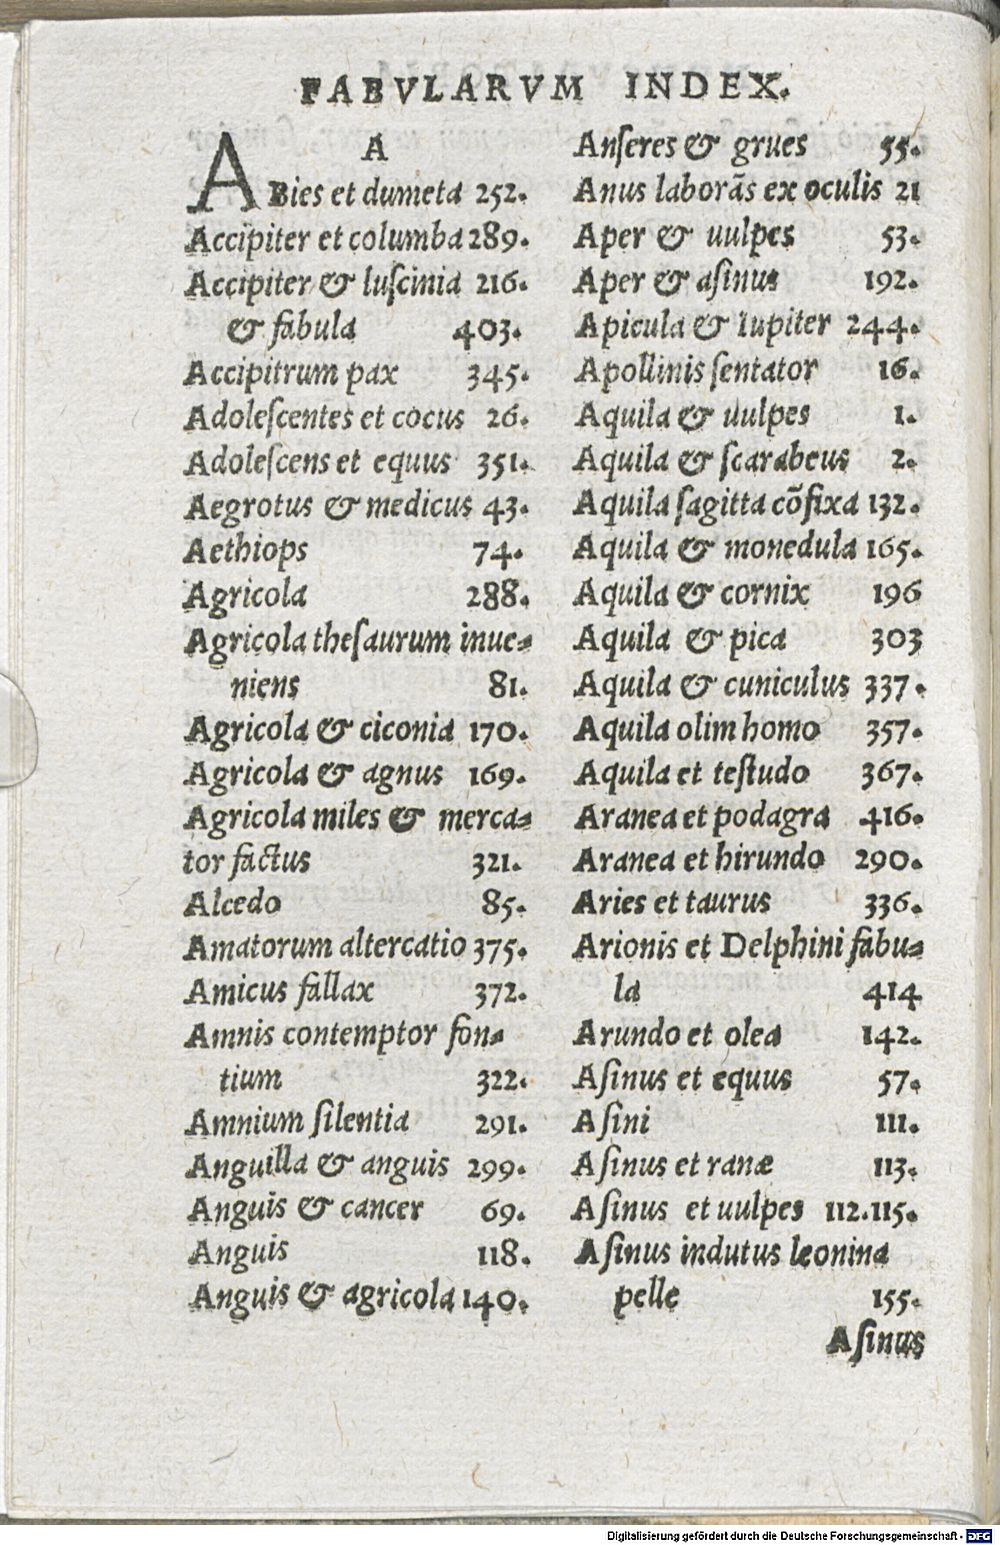 FABVLARVM INDEX.
A
ABies et dumeta 252.
Accipiter et columba 289.
Accipiter & luſcinia 216.
& fabula 403.
Accipitrum pax 345.
Adoleſcentes et cocus 26.
Adoleſcens et equus 351.
Aegrotus & medicus 43.
Aethiops 74.
Agricola 288.
Agricola theſaurum inue-
niens 81.
Agricola & ciconia 170.
Agricola & agnus 169.
Agricola miles & merca-
tor factus 321.
Alcedo 85.
Amatorum altercatio 375.
Amicus fallax 372.
Amnis contemptor fon-
tium 322.
Amnium ſilentia 291.
Anguilla & anguis 299.
Anguis & cancer 69.
Anguis 118.
Anguis & agricola 140.
Anſeres & grues 55.
Anus laborãs ex oculis 21
Aper & uulpes 53.
Aper & aſinus 192.
Apicula & Iupiter 244.
Apollinis ſentator 16.
Aquila & uulpes 1.
Aquila & ſcarabeus 2.
Aquila ſagitta cõfixa 132.
Aquila & monedula 165.
Aquila & cornix 196
Aquila & pica 303
Aquila & cuniculus 337.
Aquila olim homo 357.
Aquila et teſtudo 367.
Aranea et podagra 416.
Aranea et hirundo 290.
Aries et taurus 336.
Arionis et Delphini fabu-
la 414
Arundo et olea 142.
Aſinus et equus 57.
Aſini 111.
Aſinus et ranæ 113.
Aſinus et uulpes 112.115.
Aſinus indutus leonina
pelle 155.
Aſinus
Digitalisierung gefördert durch die Deutsche Forschungsgemeinschaft - DFG